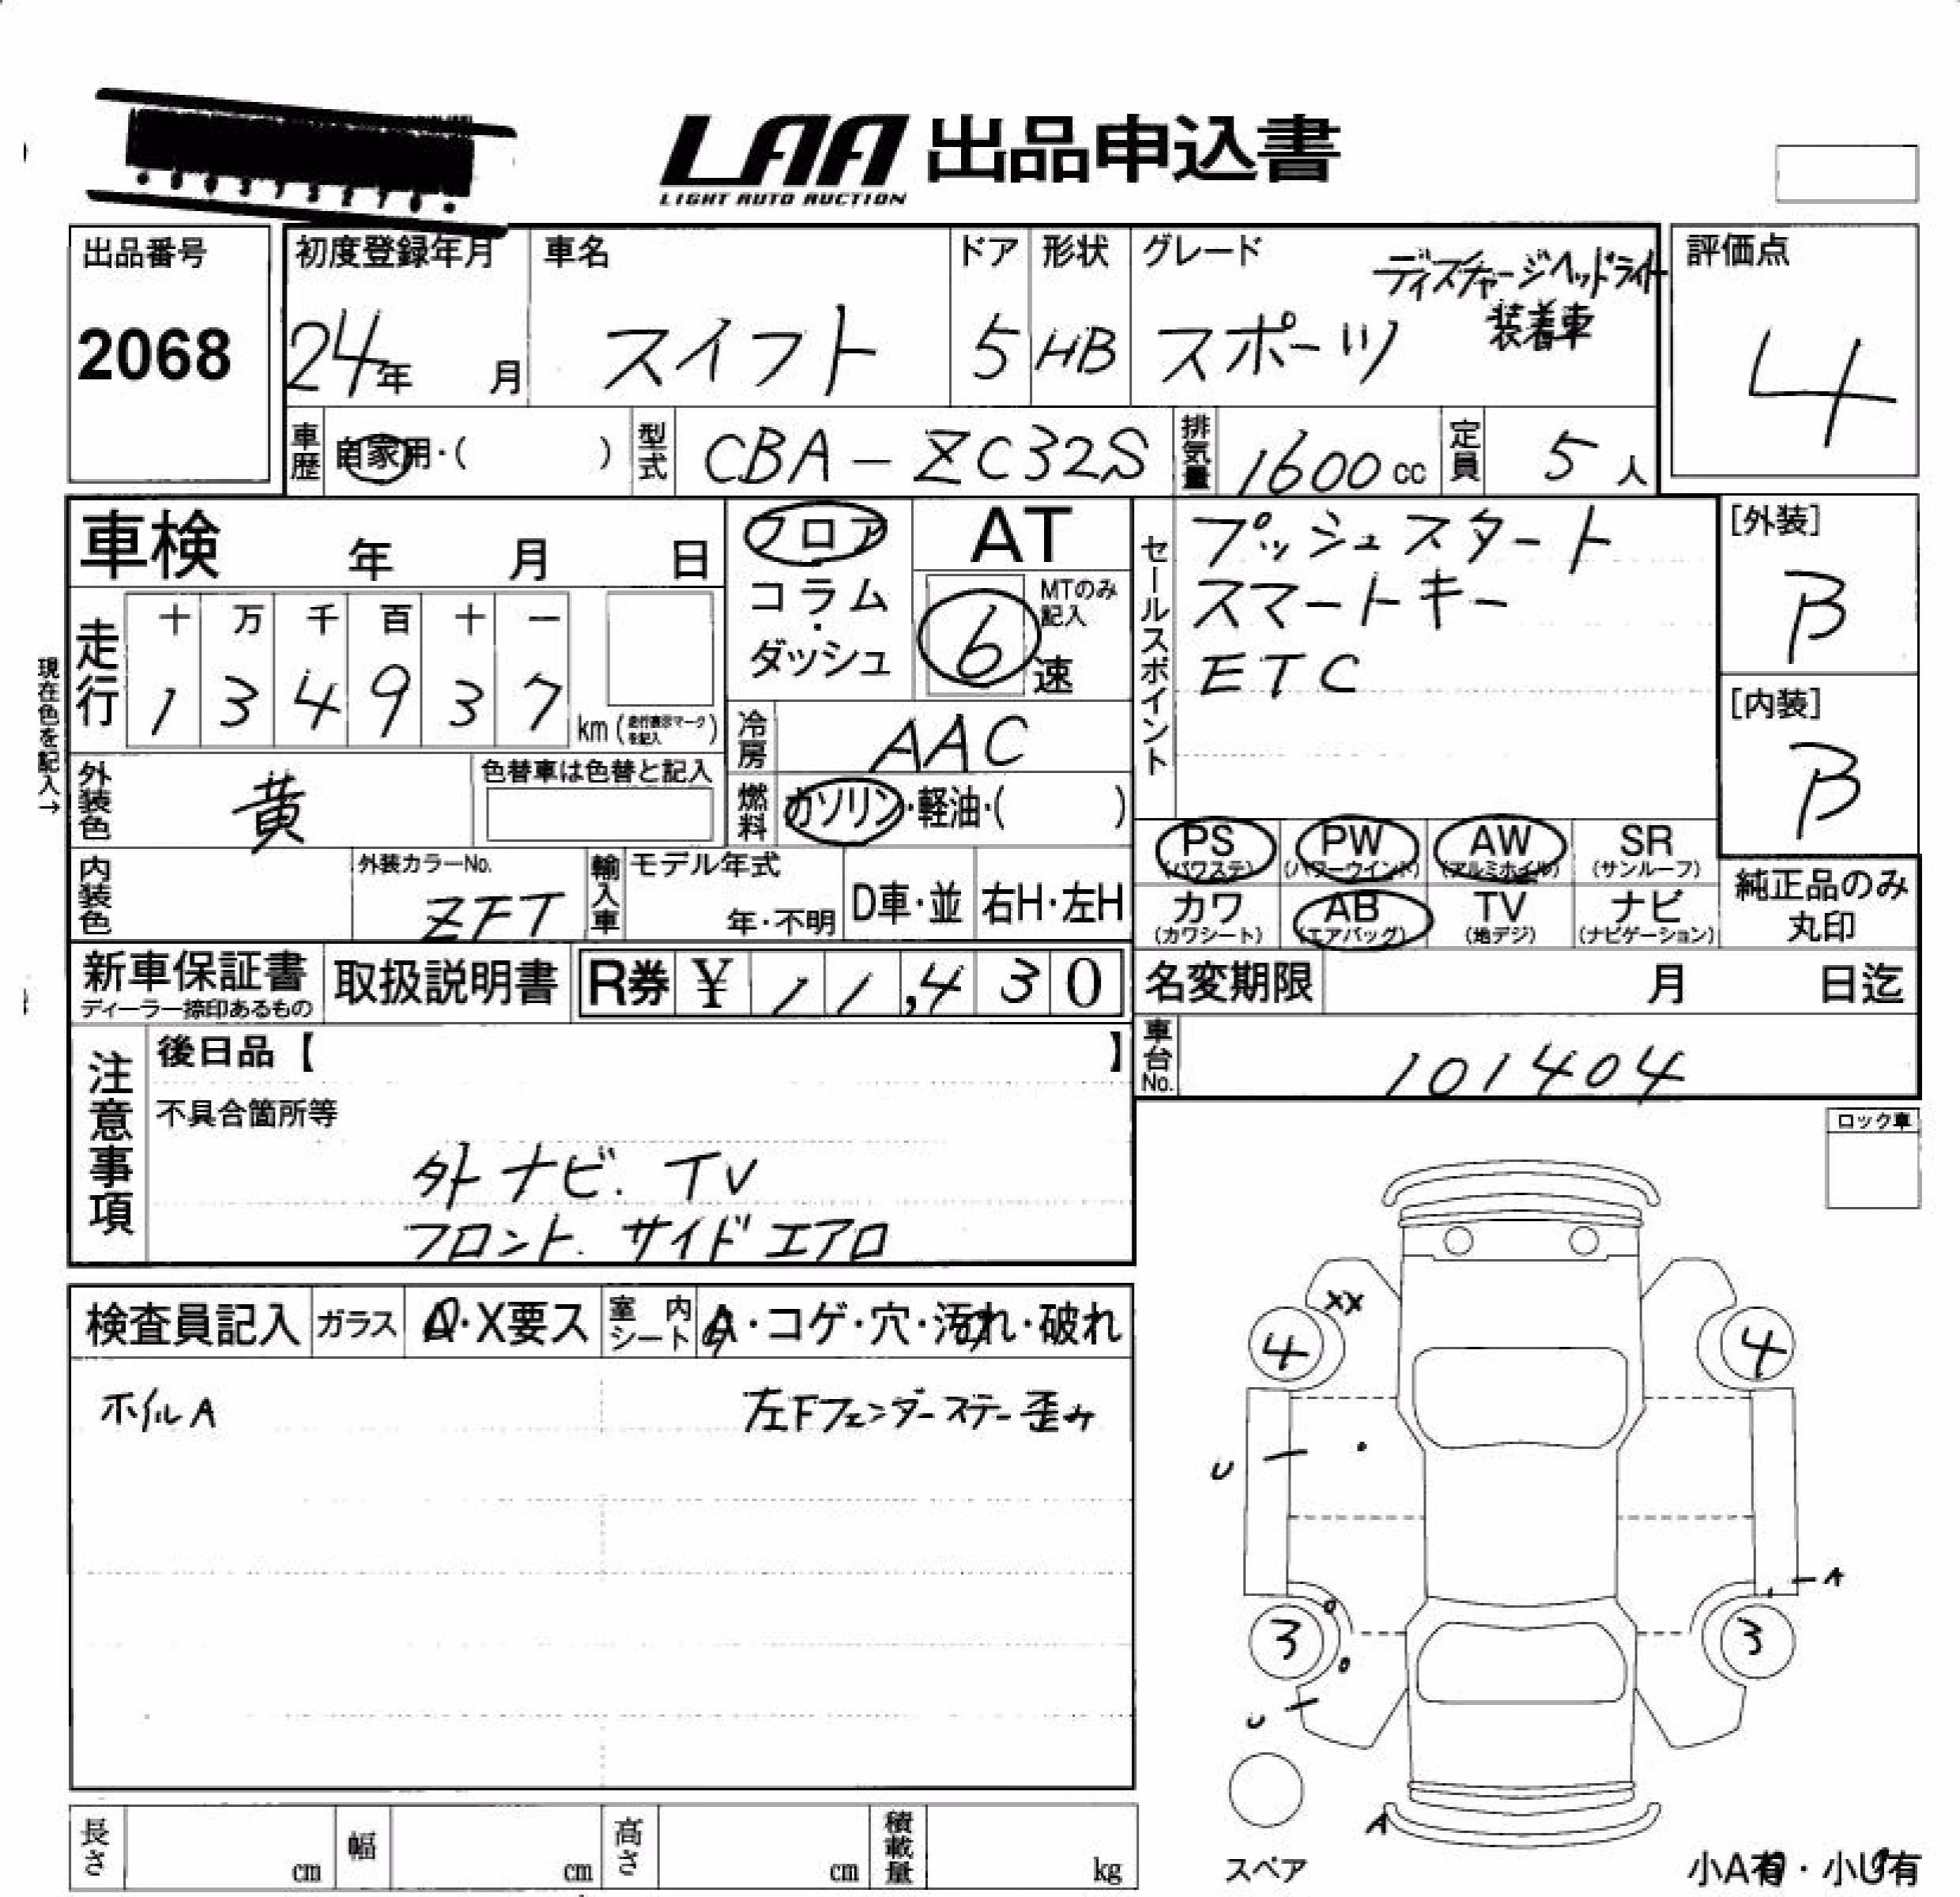 LAA 出品申込書
LIGHT AUTO AUCTION
出品番号
2068
初度登録年月
24年 月
車名
スイフト
ドア
5
形状
HB
グレード
スポーツ
ディスチャージヘッドライト
装着車
評価点
4
車歴 自家用・( )
型式 CBA-ZC32S
排気量 1600 cc
定員 5 人
車検 年 月 日
走行
十 万 千 百 十 一
1 3 4 9 3 7
km (走行表示マークを記入)
現在色を記入→
フロア
コラム
・
ダッシュ
AT
6 速
MTのみ
記入
冷房 AAC
燃料 ガソリン・軽油・( )
セールスポイント
プッシュスタート
スマートキー
ETC
[外装]
B
[内装]
B
外装色 黄
色替車は色替と記入
内装色
外装カラーNo.
ZFT
輸入車
モデル年式
年・不明
D車・並
右H・左H
PS PW AW SR
(パワステ) (パワーウインド) (アルミホイル) (サンルーフ)
カワ AB TV ナビ
(カワシート) (エアバッグ) (地デジ) (ナビゲーション)
純正品のみ
丸印
新車保証書
ディーラー捺印あるもの
取扱説明書
R券 ¥ 11,430
名変期限 月 日迄
車台No. 101404
注意事項
後日品【 】
不具合箇所等
外ナビ. TV
フロント. サイドエアロ
ロック車
検査員記入
ガラス
A・X要ス
室内シート
A・コゲ・穴・汚れ・破れ
ホイルA
左Fフェンダーステー歪み
XX
4 4
U
A
3 3
U
A
スペア
小A有・小U有
長さ cm
幅 cm
高さ cm
積載量 kg